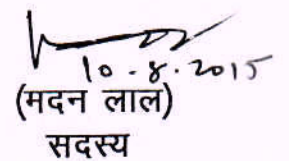 10.8.2015
(मदन लाल)
सदस्य